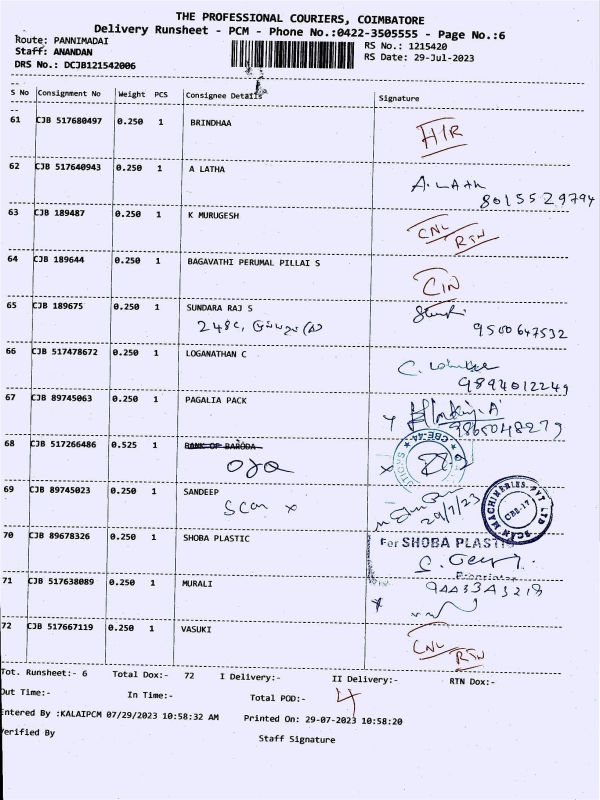 THE PROFESSIONAL COURIERS, COIMBATORE
Delivery Runsheet - PCM - Phone No.:0422-3505555 - Page No.:6
Route: PANNIMADAI
RS No.: 1215420
Staff: ANANDAN
RS Date: 29-Jul-2023
DRS No.: DCJB121542006
S No Consignment No Weight PCS Consignee Details Signature
61 CJB 517680497 0.250 1 BRINDHAA
62 CJB 517640943 0.250 1 A LATHA A. LATH
8015529794
63 CJB 189487 0.250 1 K MURUGESH CNL
RTN
64 CJB 189644 0.250 1 BAGAVATHI PERUMAL PILLAI S
65 CJB 189675 0.250 1 SUNDARA RAJ S
248C,
9500647532
66 CJB 517478672 0.250 1 LOGANATHAN C
9894012249
67 CJB 89745063 0.250 1 PAGALIA PACK
9865048279
68 CJB 517266486 0.525 1 BANK OF BARODA
CBE-44
69 CJB 89745023 0.250 1 SANDEEP
Scan x
29/7/23
SCAN MACHINERIES PVT LTD
CBE-17
70 CJB 89678326 0.250 1 SHOBA PLASTIC
For SHOBA PLASTIC
Proprietor
71 CJB 517638089 0.250 1 MURALI
72 CJB 517667119 0.250 1 VASUKI CNL
RTN
Tot. Runsheet:- 6 Total Dox:- 72 I Delivery:- II Delivery:- RTN Dox:-
Out Time:- In Time:- Total POD:- 4
Entered By :KALAIPCM 07/29/2023 10:58:32 AM Printed On: 29-07-2023 10:58:20
Verified By Staff Signature